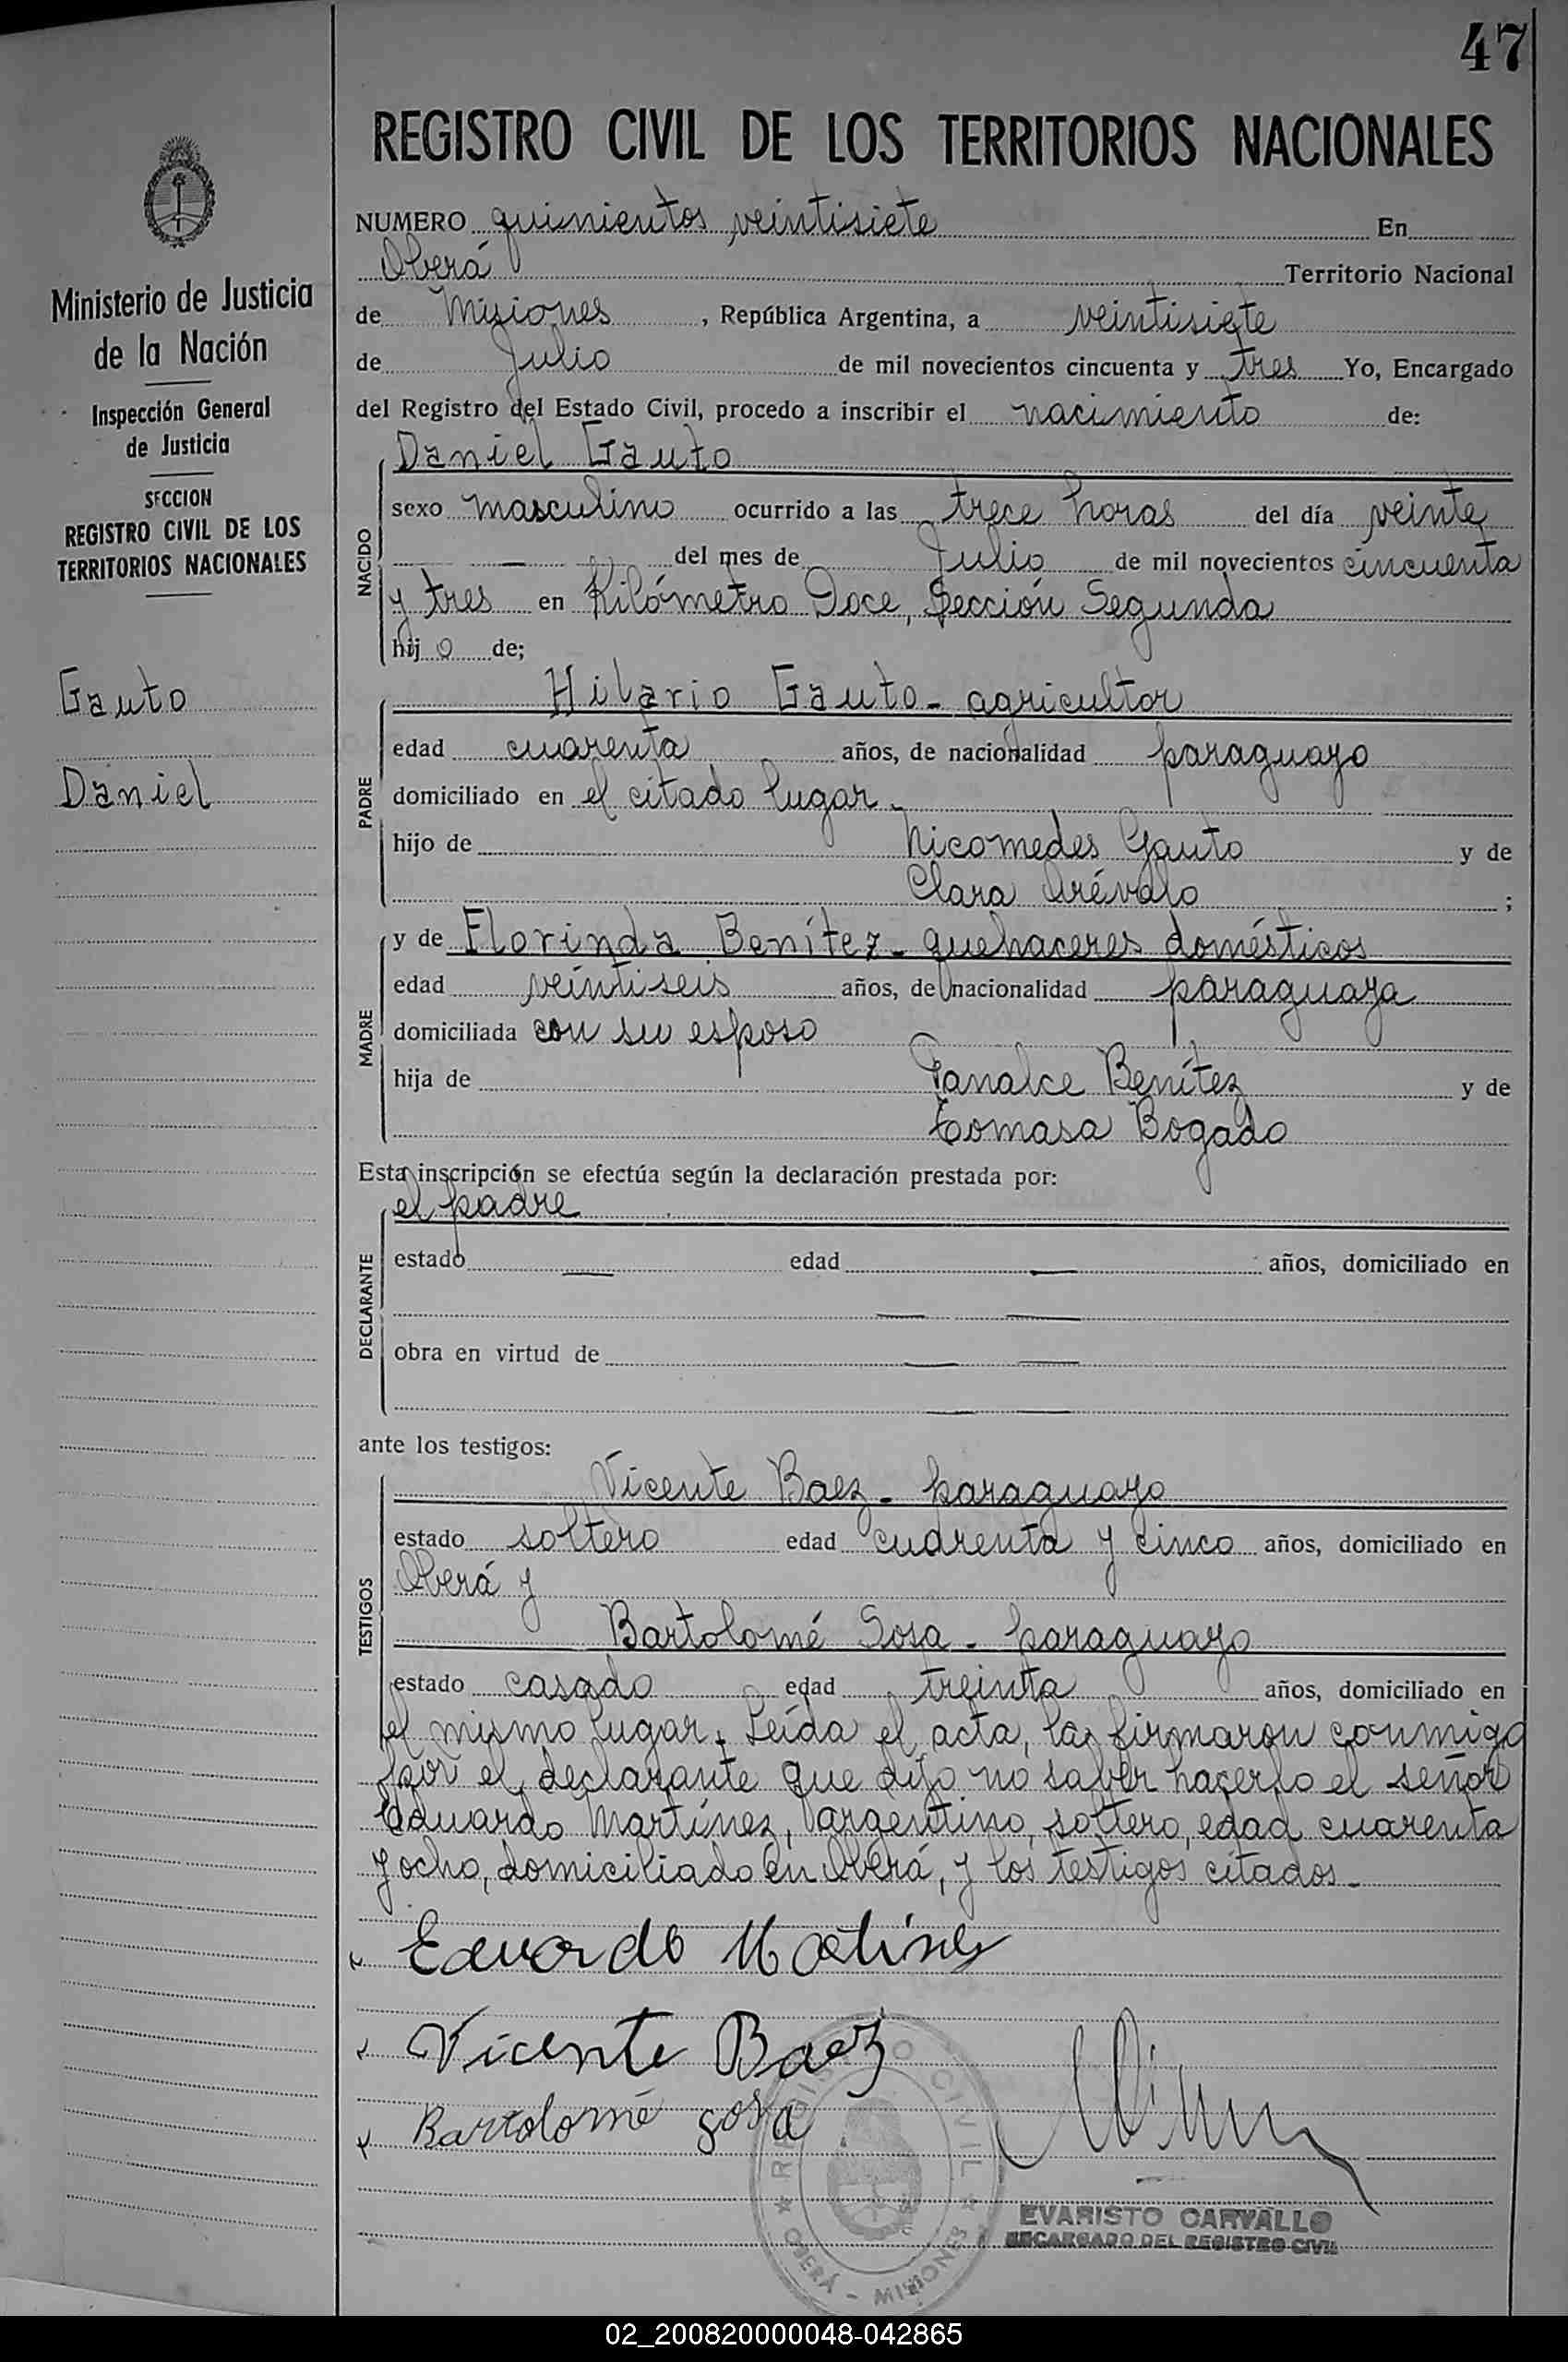 47
REGISTRO CIVIL DE LOS TERRITORIOS NACIONALES
Ministerio de Justicia
de la Nación
Inspección General
de Justicia
SECCION
REGISTRO CIVIL DE LOS
TERRITORIOS NACIONALES
Gauto
Daniel
NUMERO quinientos veintisiete En
Oberá Territorio Nacional
de Misiones, República Argentina, a veintisiete
de Julio de mil novecientos cincuenta y tres Yo, Encargado
del Registro del Estado Civil, procedo a inscribir el nacimiento de:
NACIDO
Daniel Gauto
sexo masculino ocurrido a las trece horas del día veinte
— del mes de Julio de mil novecientos cincuenta
y tres en Kilómetro Doce, Sección Segunda
hijo de;
PADRE
Hilario Gauto - agricultor
edad cuarenta años, de nacionalidad paraguayo
domiciliado en el citado lugar -
hijo de Nicomedes Gauto y de
Clara Arévalo ;
MADRE
y de Florinda Benítez - quehaceres domésticos
edad veintiseis años, de nacionalidad paraguaya
domiciliada con su esposo
hija de Benítez y de
Tomasa Bogado
Esta inscripción se efectúa según la declaración prestada por:
DECLARANTE
el padre
estado — edad — años, domiciliado en
— —
obra en virtud de — —
— —
ante los testigos:
TESTIGOS
Vicente Baez - paraguayo
estado soltero edad cuarenta y cinco años, domiciliado en
Oberá y
Bartolomé Sosa - paraguayo
estado casado edad treinta años, domiciliado en
el mismo lugar. Leída el acta, la firmaron conmigo
por el declarante que dijo no saber hacerlo el señor
Eduardo Martínez, argentino, soltero, edad cuarenta
y ocho, domiciliado en Oberá, y los testigos citados -
Eduardo Martines
Vicente Baez
Bartolomé Sosa
REGISTRO CIVIL
OBERÁ - MISIONES
EVARISTO CARVALLO
ENCARGADO DEL REGISTRO CIVIL
02_200820000048-042865